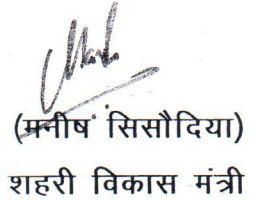 (मनीष सिसौदिया)
शहरी विकास मंत्री